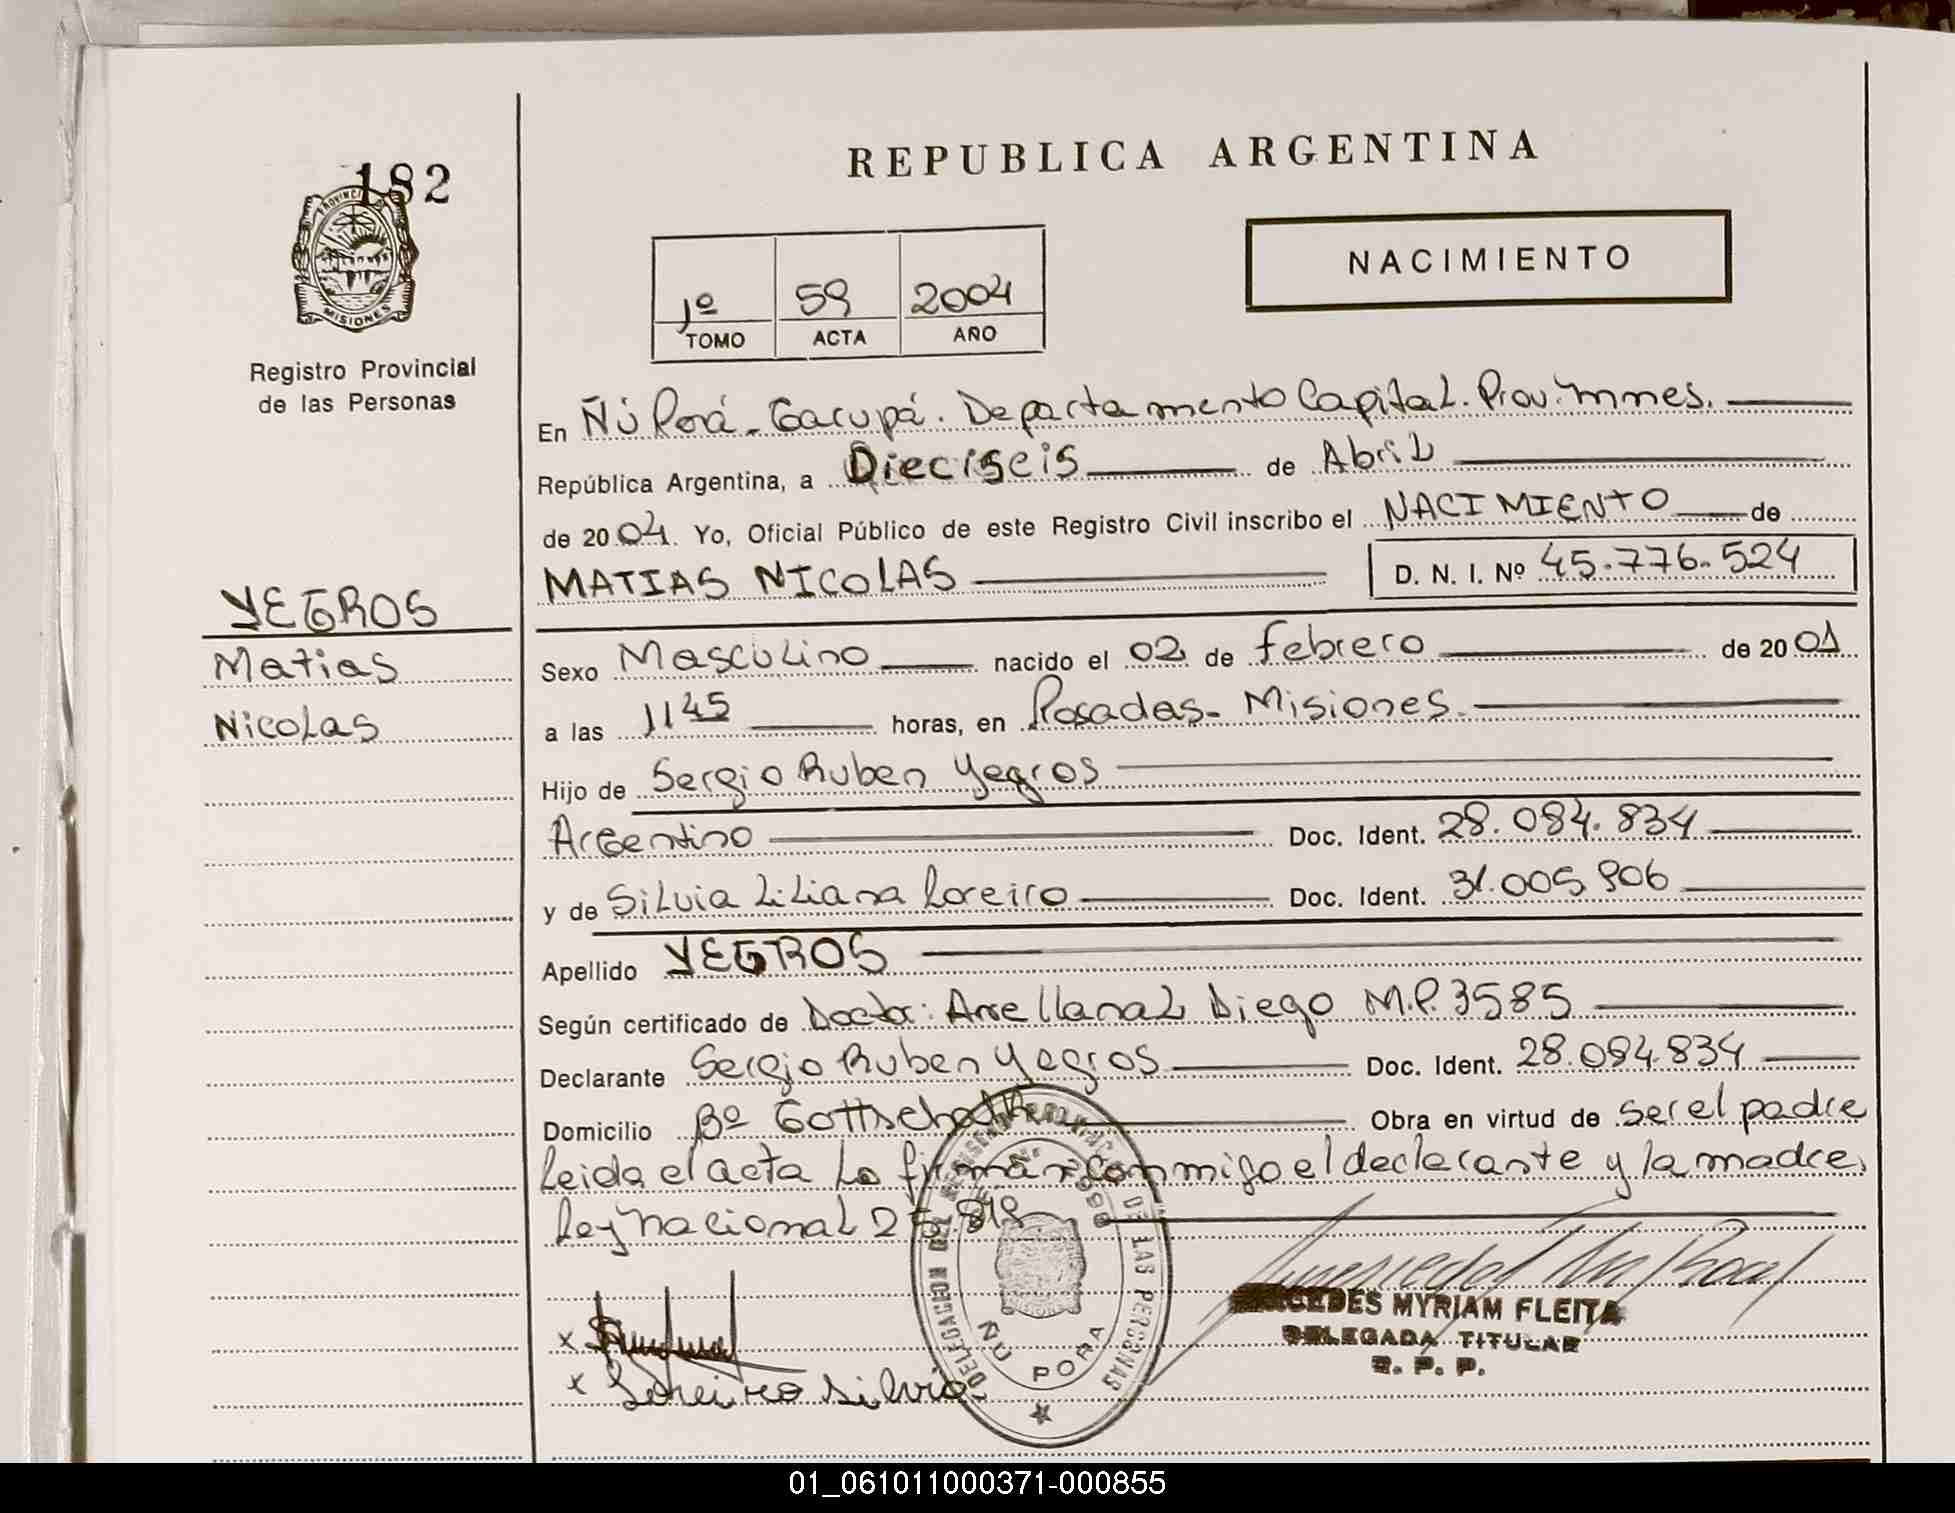 182
REPUBLICA ARGENTINA
PROVINCIA
MISIONES
Registro Provincial
de las Personas
NACIMIENTO
1º 59 2004
TOMO ACTA AÑO
En Ñú Porá - Garupá. Departamento Capital. Prov. Mnes.
República Argentina, a Dieciseis de Abril
de 2004. Yo, Oficial Público de este Registro Civil inscribo el NACIMIENTO de
MATIAS NICOLAS D. N. I. Nº 45.776.524
YEGROS
Matias
Nicolas
Sexo Masculino nacido el 02 de febrero de 2001
a las 1145 horas, en Posadas - Misiones.
Hijo de Sergio Ruben Yegros
Argentino Doc. Ident. 28.084.834
y de Silvia Liliana Loreiro Doc. Ident. 31.005.906
Apellido YEGROS
Según certificado de Doctor: Arellanal Diego M.P. 3585
Declarante Sergio Ruben Yegros Doc. Ident. 28.084.834
Domicilio Bº Obra en virtud de ser el padre
Leida el acta la firman conmigo el declarante y la madre.
Ley Nacional 25.818
DELEGACION DEL REGISTRO PROVINCIAL DE LAS PERSONAS
ÑU PORA
MERCEDES MYRIAM FLEITA
DELEGADA TITULAR
R. P. P.
x
x Loreiro Silvia
01_061011000371-000855